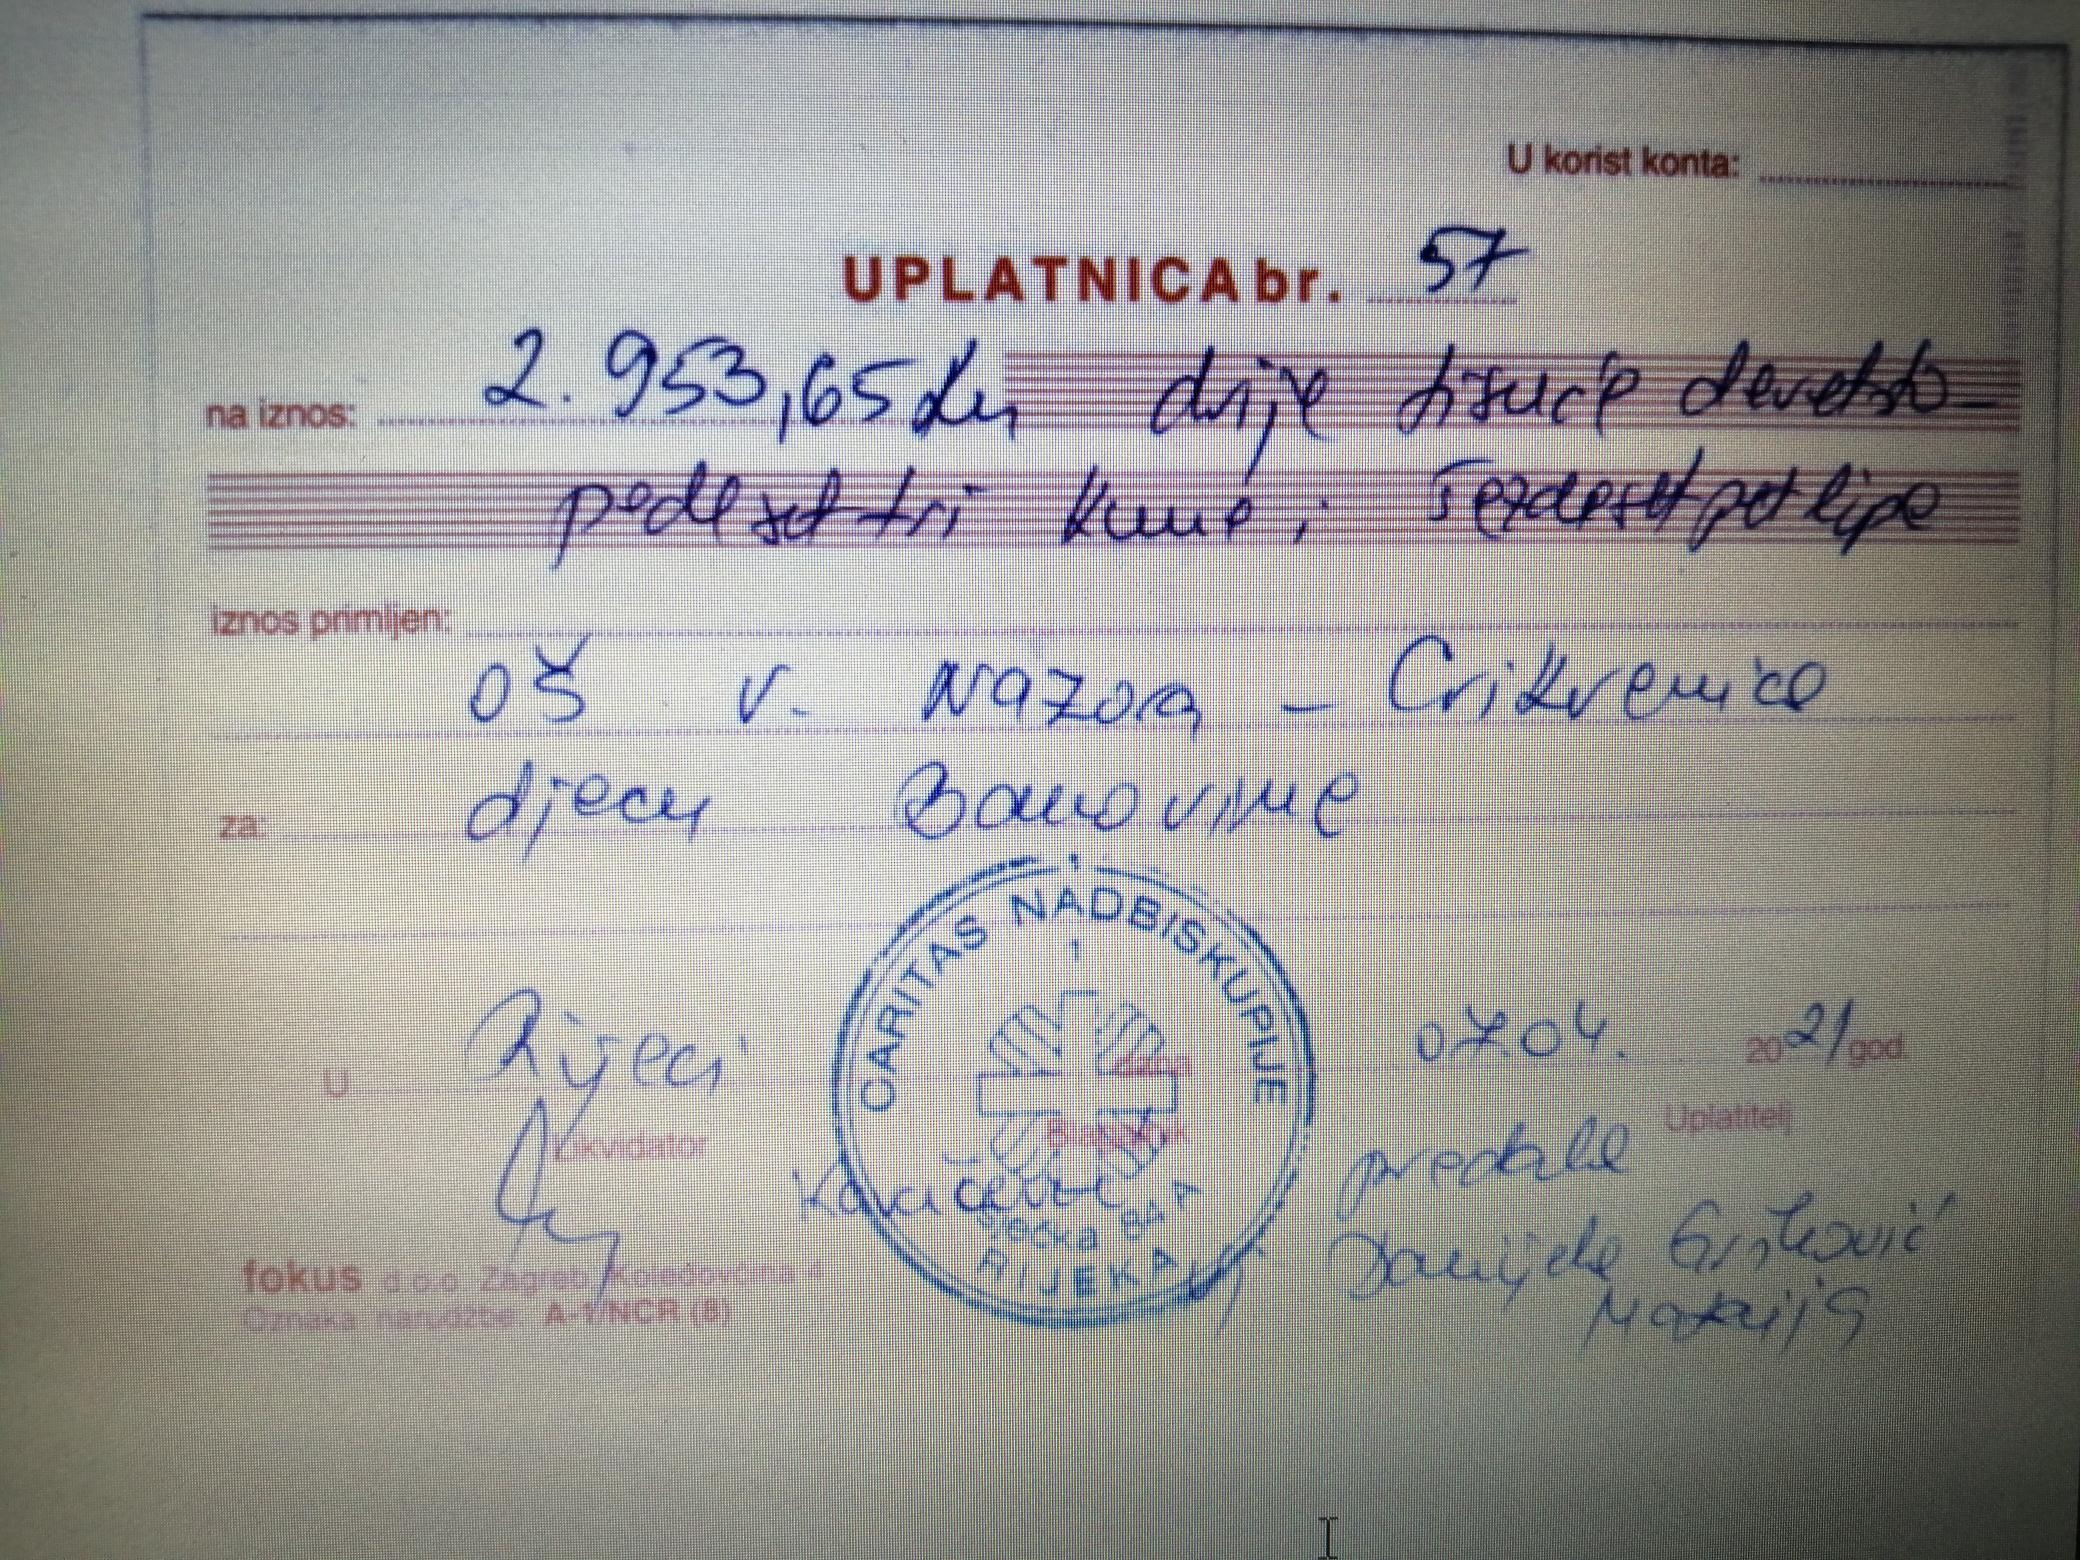 U korist konta:
UPLATNICA br. 57
na iznos: 2.953,65 kn dvije tisuće devetsto-
pedeset tri kune i šezdeset pet lipe
iznos primljen:
OŠ V. Nazora - Crikvenica
za: djecu Banovine
CARITAS NADBISKUPIJE
1
U Rijeci 07.04. 2021 god.
Likvidator Blagajnik Uplatitelj
predala
Danijela
Matija
RIJEKA
fokus d.o.o. Zagreb, Koledovčina 4
Oznaka narudžbe: A-1/NCR (B)